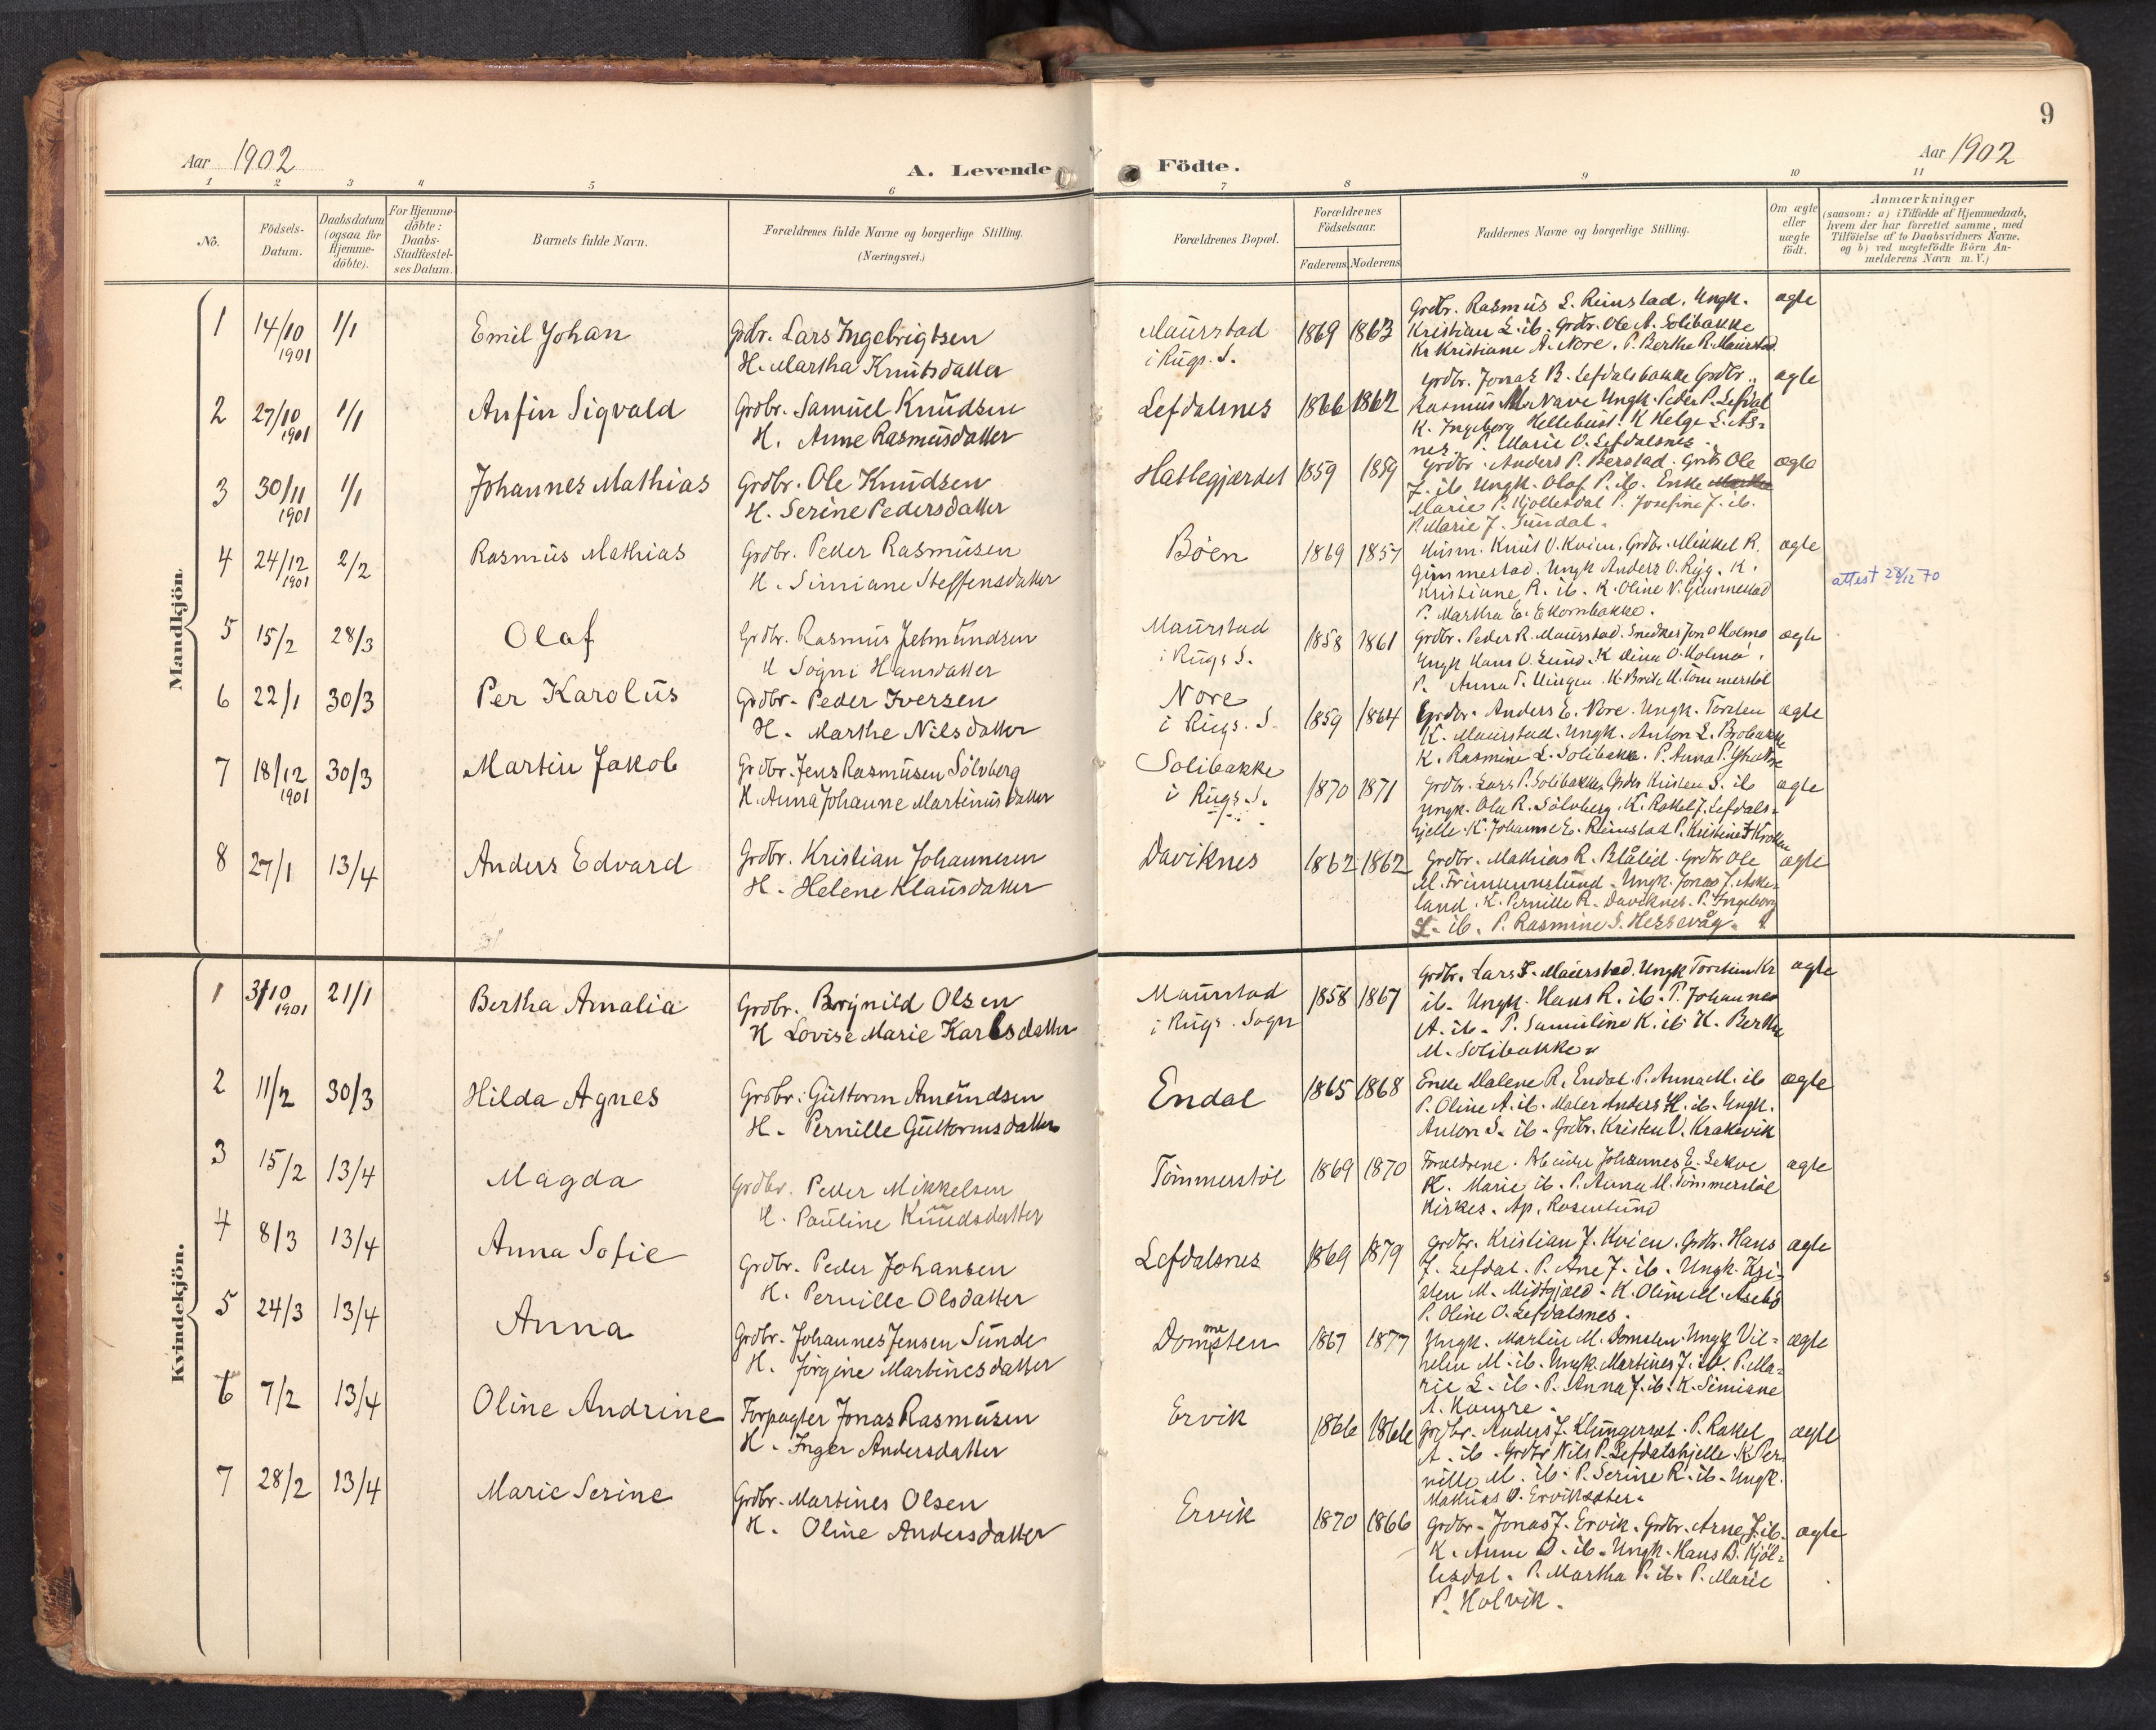 9
Aar 1902
A. Levende Födte.
Aar 1902
1 2 3 4 5 6 7 8 9 10 11
No.
Födsels-Datum.
Daabsdatum (ogsaa for Hjemme-döbte).
For Hjemme-döbte: Daabs-Stadfæstel-ses Datum.
Barnets fulde Navn.
Forældrenes fulde Navne og borgerlige Stilling. (Næringsvei.)
Forældrenes Bopæl.
Forældrenes Födselsaar.
Faderens Moderens
Faddernes Navne og borgerlige Stilling.
Om ægte eller uægte födt.
Anmærkninger
(saasom: a) i Tilfælde af Hjemmedaab, hvem der har forrettet samme, med Tilföielse af to Daabsvidners Navne, og b) ved uægtefödte Börn An-melderens Navn m. V.)
Mandkjön.
1 14/10 1901 1/1 Emil Johan
Grdbr. Lars Ingebrigtsen
H. Martha Knutsdatter
Maurstad
i Rugs. S.
1869 1863
Grdbr. Rasmus L. Reinstad. Ungk.
Kristian L. ib. Grdbr. Ole A. Solibakke
K. Kristiane A. Nore. P. Berthe R. Maurstad
ægte
2 27/10 1901 1/1 Anfin Sigvald
Grdbr. Samuel Knudsen
H. Anne Rasmusdatter
Lefdalsnes 1866 1862
Grdbr. Jonas B. Lefdalsbakke Grdbr.
Rasmus M. Nave Ungk. Peder P. Lefdal
K. Ingeborg Hellebust. K Helge L.
nes. P. Marie O. Lefdalsnes.
ægte
3 30/11 1901 1/1 Johannes Mathias
Grdbr. Ole Knudsen
H. Serine Pedersdatter
Hatlegjærdet 1859 1859
Grdbr. Anders P. Berstad. Grdb Ole
J. ib Ungk. Olaf P. ib. Enke
Marie P. Kjöllesdal P. Josefine J. ib.
P. Marie J. Sundal.
ægte
4 24/12 1901 2/2 Rasmus Mathias
Grdbr. Peder Rasmusen
H. Simiane Steffensdatter
Böen 1869 1857
Husm. Knut O. Kvien. Grdbr. Mikkel R.
Gimmestad. Ungk Anders O. Ryg. K.
Kristiane R. ib. K. Oline N. Gimmestad
P. Martha E. Ekornbakke.
ægte
attest 28/12 70
5 15/2 28/3 Olaf
Grdbr. Rasmus Jetmundsen
H Sogni Hansdatter
Maurstad
i Rugs S.
1858 1861
Grdbr. Peder R. Maurstad. Snedker Jon O Holmö
Ungk Hans O. Lund. K Dina O. Holmö.
P. Anna T. Vingen. K. Brite M. Tömmerstöl
ægte
6 22/1 30/3 Per Karolus
Grdbr. Peder Iversen
H. Marthe Nilsdatter
Nore
i Rugs. S.
1859 1864
Grdbr. Anders E. Nore. Ungk. Torsten
K. Maurstad. Ungk. Anton L. Brobakke
K. Rasmine L. Solibakke. P. Anna P.
ægte
7 18/12 1901 30/3 Martin Jakob
Grdbr. Jens Rasmusen Sölvberg
H. Anna Johanne Martinusdatter
Solibakke
i Rugs. S.
1870 1871
Grdbr. Lars P. Solibakke, Grdbr Kristen S. ib
Ungk. Ola R. Sölvberg. K. Rakel J. Lefdals-
hjelle. K. Johanne E. Reinstad P. Kristine
ægte
8 27/1 13/4 Anders Edvard
Grdbr. Kristian Johannesen
H. Helene Klausdatter
Daviknes 1862 1862
Grdbr. Mathias R. Blålid. Grdbr Ole
M. Frimannslund. Ungk. Jonas J. Aske-
land. K. Pernille R. Daviknes. P. Ingeborg
L. ib. P. Rasmine S. Hessevåg.
ægte
Kvindekjön.
1 3/10 1901 21/1 Bertha Amalia
Grdbr. Brynild Olsen
H Lovise Marie Karlsdatter
Maurstad
i Rugs. Sogn
1858 1867
Grdbr. Lars J. Maurstad. Ungk Torstein Kr
ib. Ungk. Hans R. ib. P. Johannes
A. ib. P. Samuline K. ib K. Berthe
M. Solibakken
ægte
2 11/2 30/3 Hilda Agnes
Grdbr. Guttorm Amundsen
H. Pernille Guttormsdatter
Endal 1865 1868
Enke Malene R. Endal. P. Anna M. ib
P. Oline A. ib. Maler Anders H. ib. Ungk.
Anton S. ib. Grdbr. Kristen V. Krakevik
ægte
3 15/2 13/4 Magda
Grdbr. Peder Mikkelsen
H. Pauline Knudsdatter
Tömmerstöl 1869 1870
Forældrene. Arbeider Johannes E. Sekve
K. Marie ib. P. Anna M. Tömmerstöl
Kirkes. Ap. Rosenlund
ægte
4 8/3 13/4 Anna Sofie
Grdbr. Peder Johansen
H. Pernille Olsdatter
Lefdalsnes 1869 1879
Grdbr. Kristian J. Kvien. Grdbr. Hans
J. Lefdal. P. Ane J. ib. Ungk. Kri-
sten M. Midtgjæld. K. Oline M. Asebö
P. Oline O. Lefdalsnes.
ægte
5 24/3 13/4 Anna
Grdbr. Johannes Jensen Sunde
H. Jörgine Martinesdatter
Dommesten 1867 1877
Ungk. Martin M. Domsten. Ungk Vil-
helm M. ib. Ungk. Martines J. ib. P. Ma-
rie L. ib. P. Anna J. ib. K. Simiane
A.
ægte
6 7/2 13/4 Oline Andrine
Forpagter Jonas Rasmusen
H. Inger Andersdatter
Ervik 1866 1866
Grdbr. Anders J. Klungerset. P. Rakel
A. ib. Grdbr Nils P. Lefdalshjelle. K Per-
nille M. ib. P. Serine R. ib. Ungk.
Mathias O. Erviksæter.
ægte
7 28/2 13/4 Marie Serine
Grdbr. Martines Olsen
H. Oline Andersdatter
Ervik 1870 1866
Grdbr. Jonas J. Ervik. Grdbr. Arne J. ib.
K. Anne O. ib. Ungk. Hans B. Kjöl-
lesdal. P. Martha P. ib. P. Marie
P. Holvik.
ægte